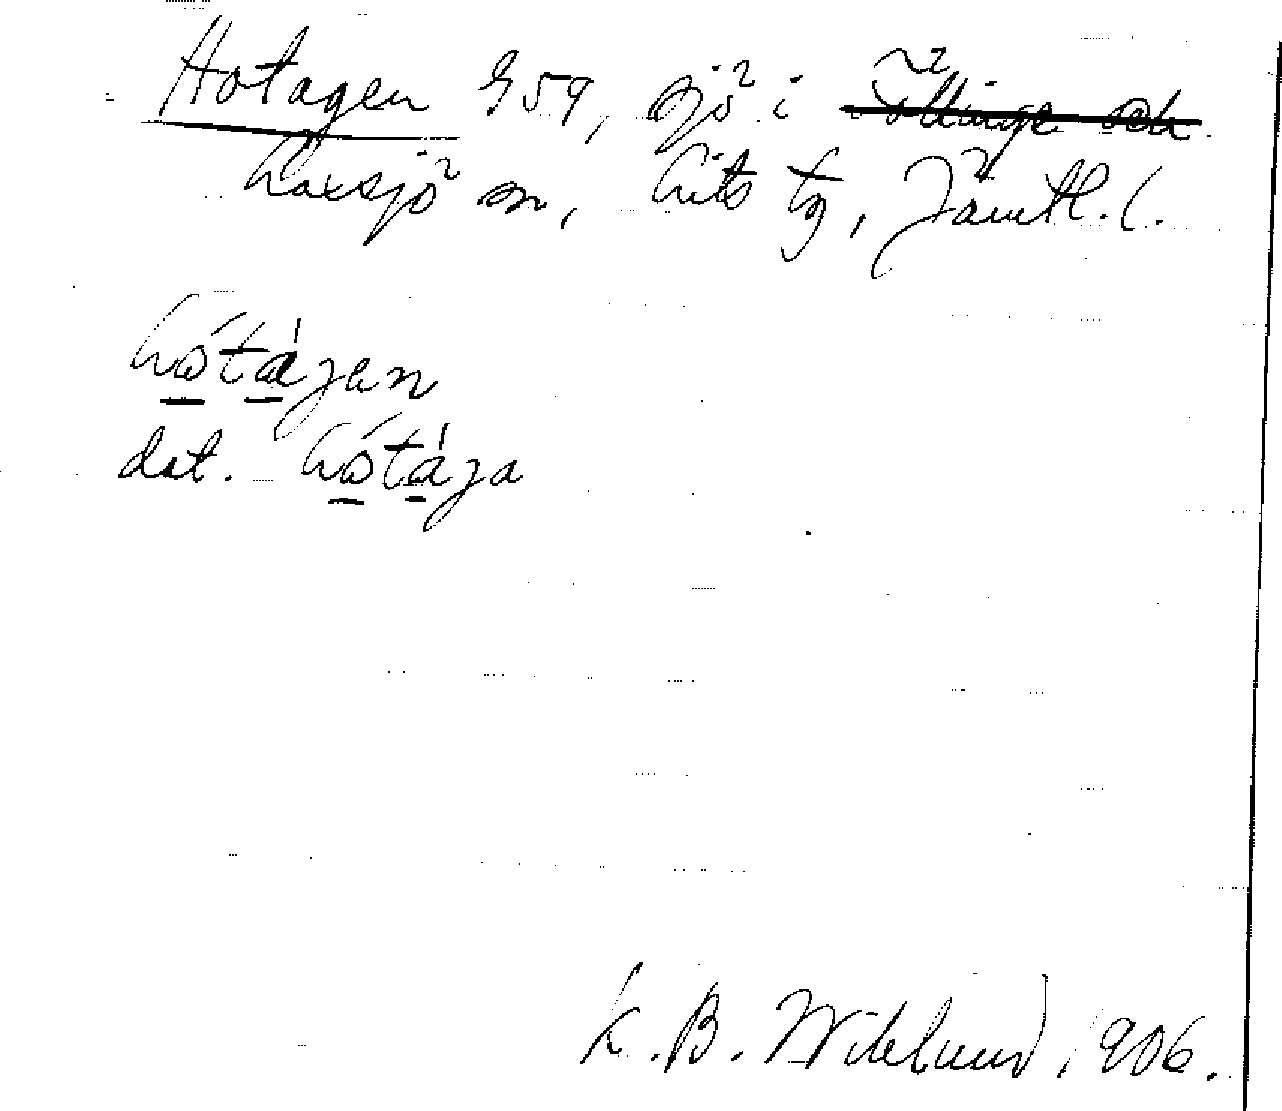 Hotagen 959, sjö i Föllinge och
Laxsjö sn, Lits tg, Jämtl. l.
hótájen
dat. hótája
K. B. Wiklund, 1906.